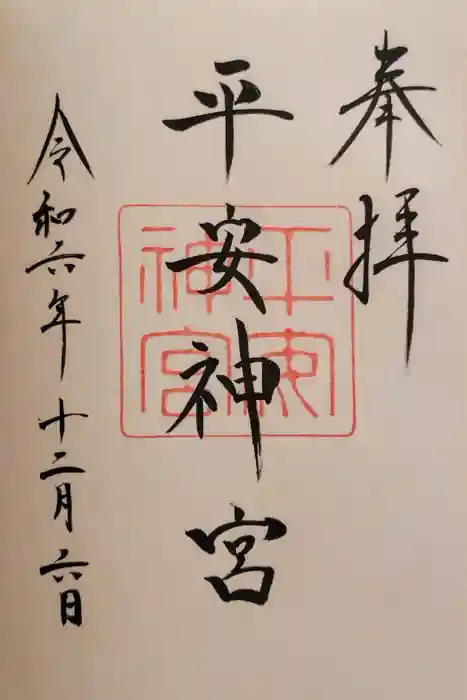 奉拝
平安神宮
平安神宮
令和六年十二月六日